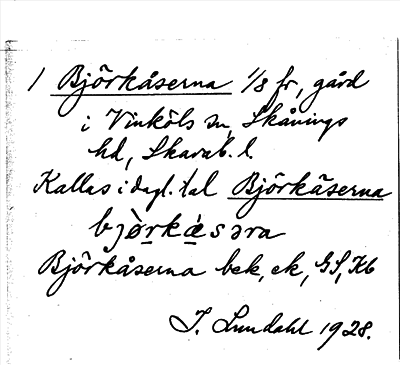 1 Björkåserna 1/8 fr, gård
i Vinköls sn, Skånings
hd, Skarab. l.
Kallas i dagl. tal Björkäserna
bjò̱rkǽsəra
Björkåserna bek, ek, GS, Kb
I. Lundahl 1928.